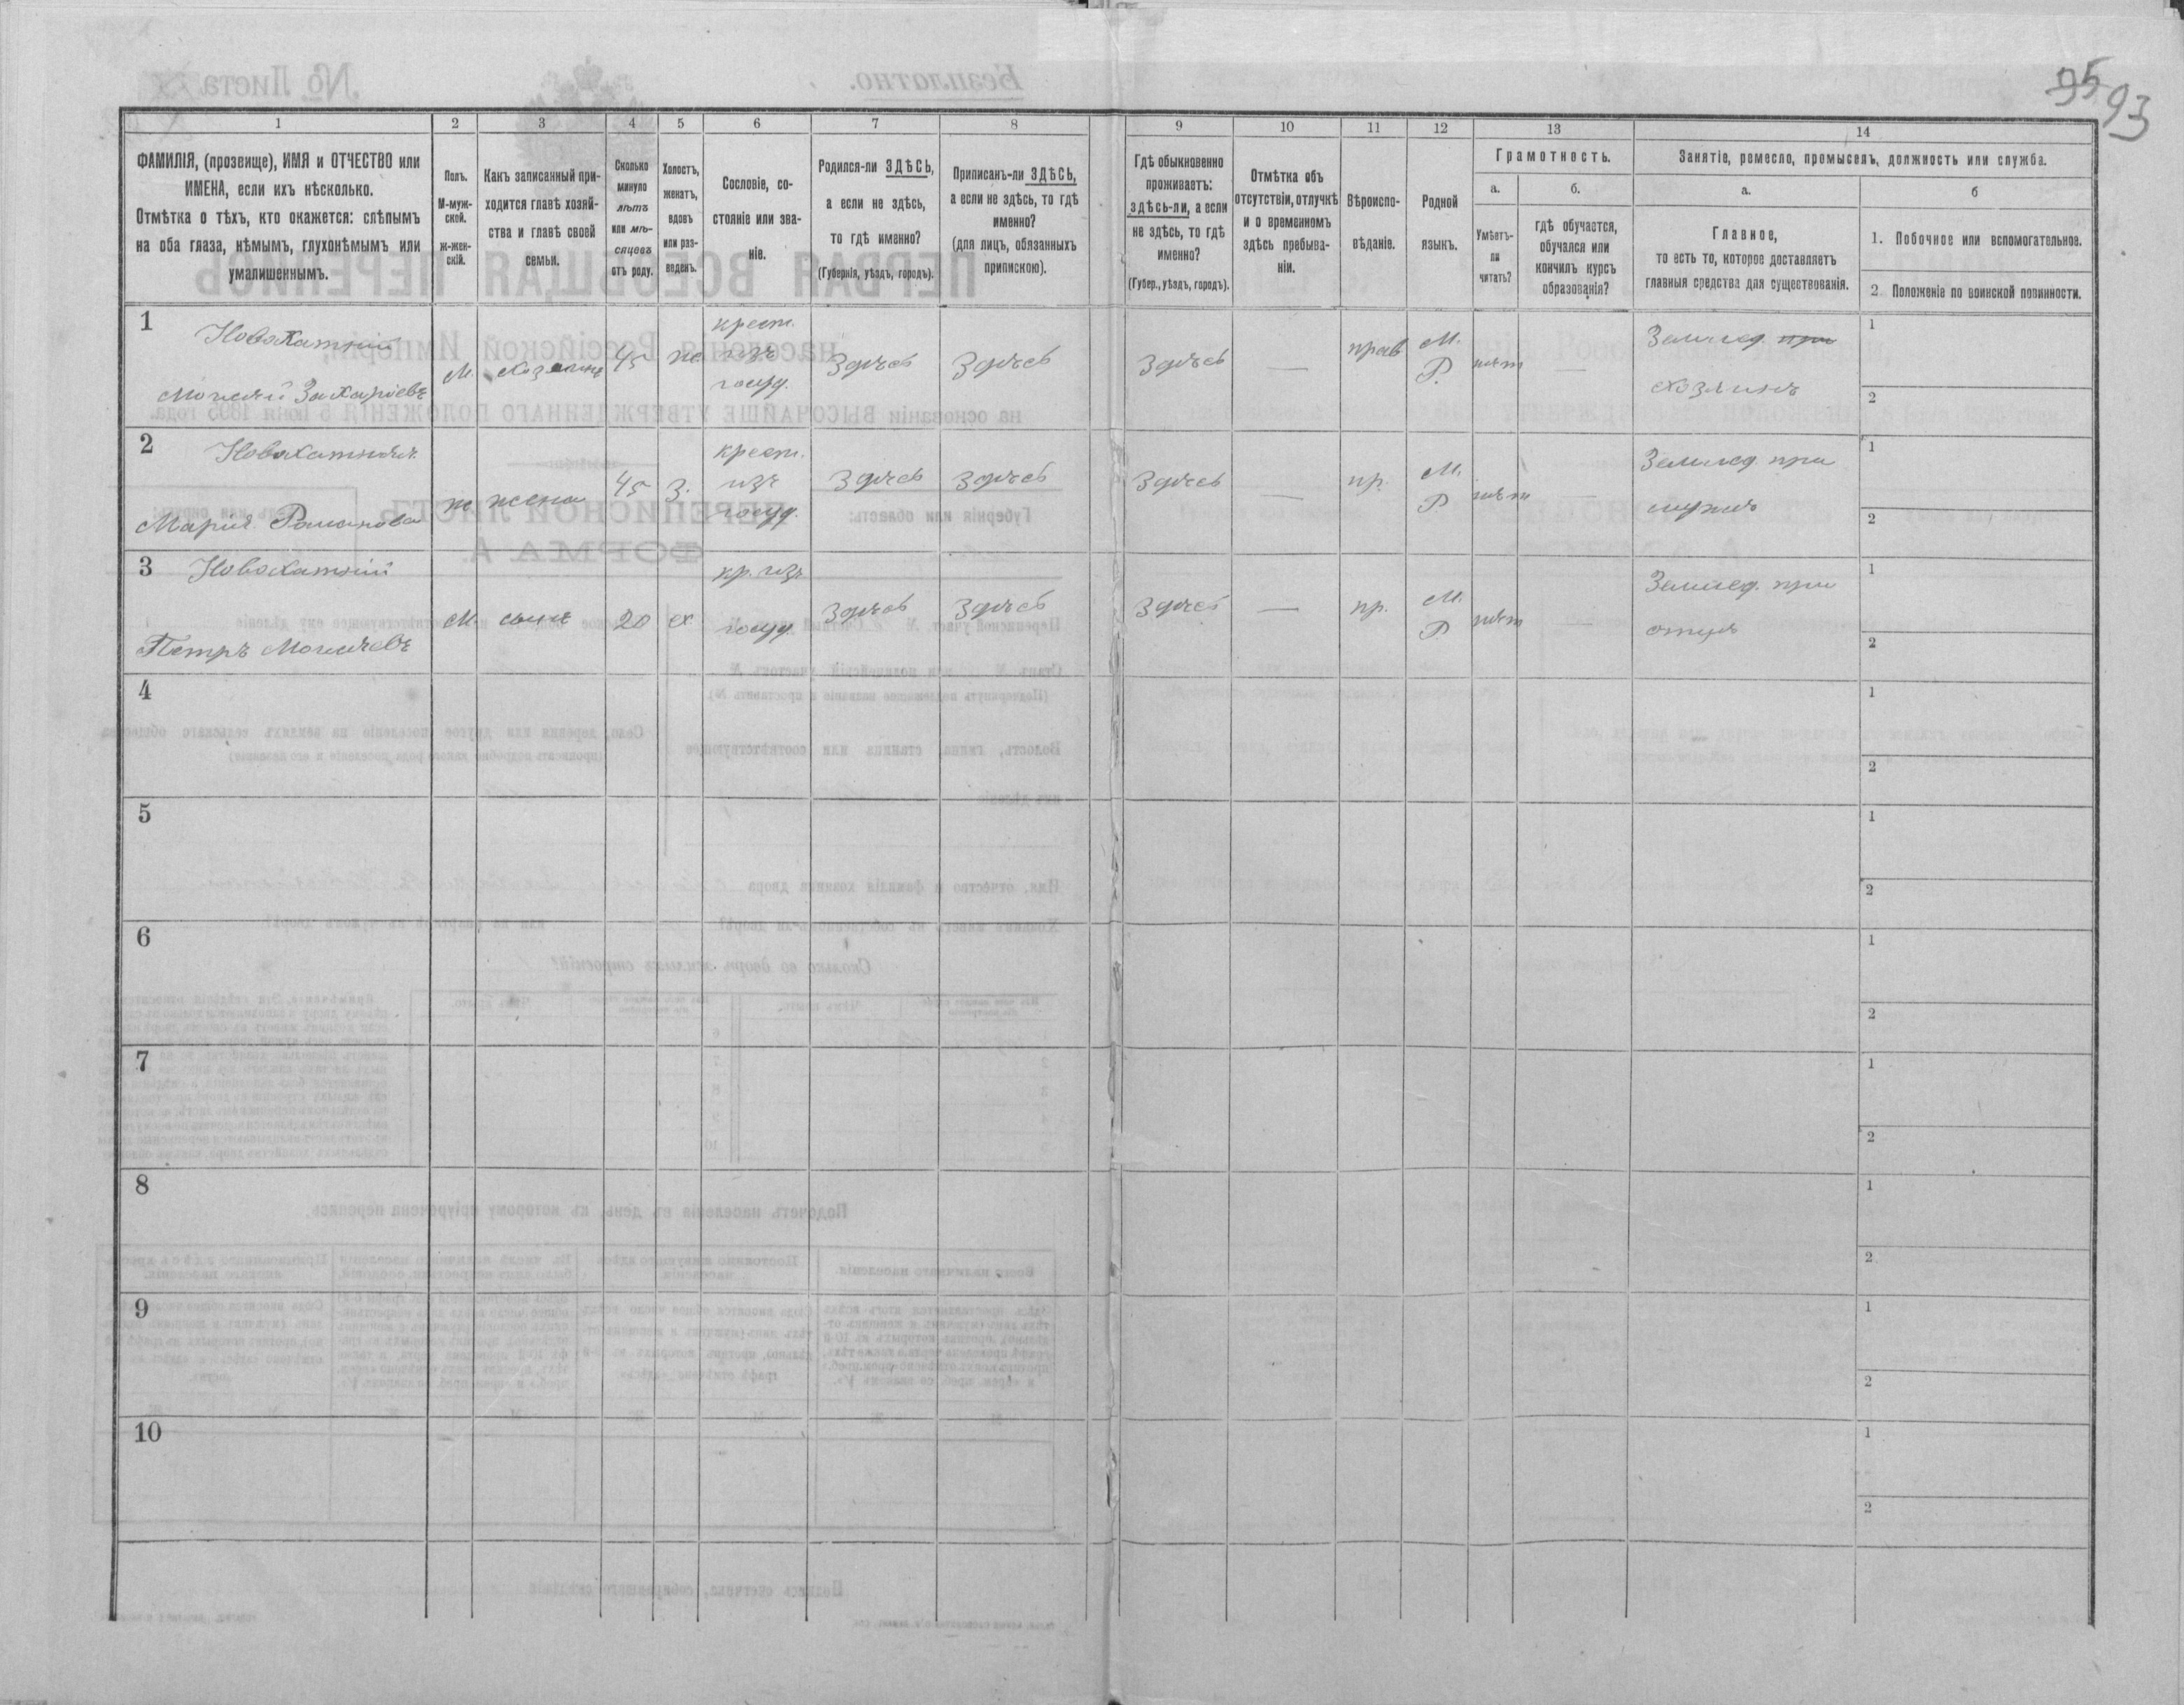 95 93
1 2 3 4 5 6 7 8 9 10 11 12 13 14
ФАМИЛІЯ, (прозвище), ИМЯ и ОТЧЕСТВО или
ИМЕНА, если ихъ нѣсколько.
Отмѣтка о тѣхъ, кто окажется: слѣпымъ
на оба глаза, нѣмымъ, глухонѣмымъ или
умалишеннымъ.
Полъ.
М-муж-
ской.
ж-жен-
скій.
Какъ записанный при-
ходится главѣ хозяй-
ства и главѣ своей
семьи.
Сколько
минуло
лѣтъ
или мѣ-
сяцевъ
отъ роду.
Холостъ,
женатъ,
вдовъ
или раз-
веденъ.
Сословіе, со-
стояніе или зва-
ніе.
Родился-ли ЗДѢСЬ,
а если не здѣсь,
то гдѣ именно?
(Губернія, уѣздъ, городъ).
Приписанъ-ли ЗДѢСЬ,
а если не здѣсь, то гдѣ
именно?
(для лицъ, обязанныхъ
припискою).
Гдѣ обыкновенно
проживаетъ:
здѣсь-ли, а если
не здѣсь, то гдѣ
именно?
(Губер., уѣздъ, городъ).
Отмѣтка объ
отсутствіи, отлучкѣ
и о временномъ
здѣсь пребыва-
ніи.
Вѣроиспо-
вѣданіе.
Родной
языкъ.
Грамотность.
а.
Умѣетъ-
ли
читать?
б.
гдѣ обучается,
обучался или
кончилъ курсъ
образованія?
Занятіе, ремесло, промыселъ, должность или служба.
а.
Главное,
то есть то, которое доставляетъ
главныя средства для существованія.
б
1. Побочное или вспомогательное.
2 Положеніе по воинской повинности.
1
Новохатній
Моисей Захаріевъ
М. хозяинъ 45 ж
крест.
изъ
госуд.
Здѣсь Здѣсь Здѣсь — прав
М.
Р.
нѣт —
Землед. при
хозяинъ
1
2
2
Новохатняя
Марія Романова
ж жена 45 З.
крест.
изъ
госуд.
Здѣсь Здѣсь Здѣсь — пр.
М.
Р
нѣт —
Землед. при
мужѣ
1
2
3
Новохатній
Петръ Моисѣевъ
М. сынъ 20 х
кр. изъ
госуд
Здѣсь Здѣсь Здѣсь — пр.
М.
Р
нѣт —
Землед. при
отцѣ
1
2
4
1
2
5
1
2
6
1
2
7
1
2
8
1
2
9
1
2
10
1
2